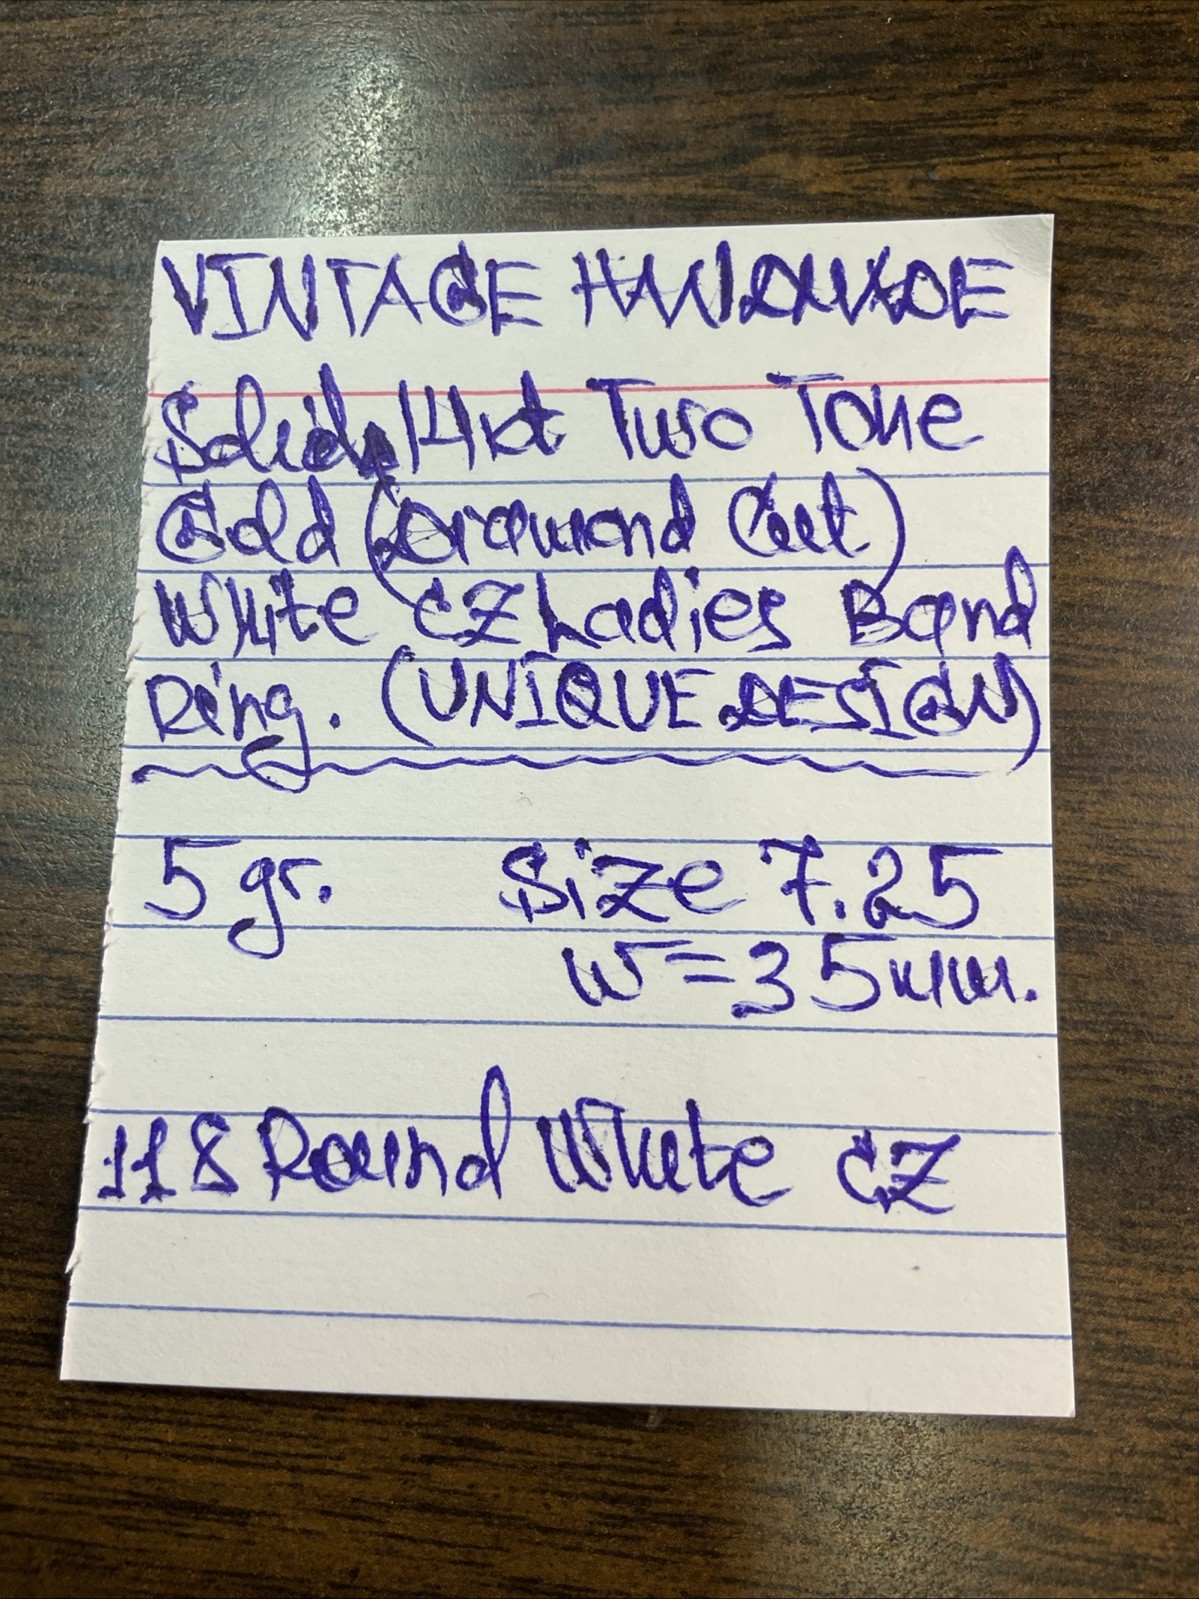 VINTAGE HANDMADE
Solid 14kt Two Tone
Gold (Diamond Cut)
White CZ Ladies Band
Ring. (UNIQUE DESIGN)
5 gr. Size 7.25
W = 35mm.
118 Round White CZ